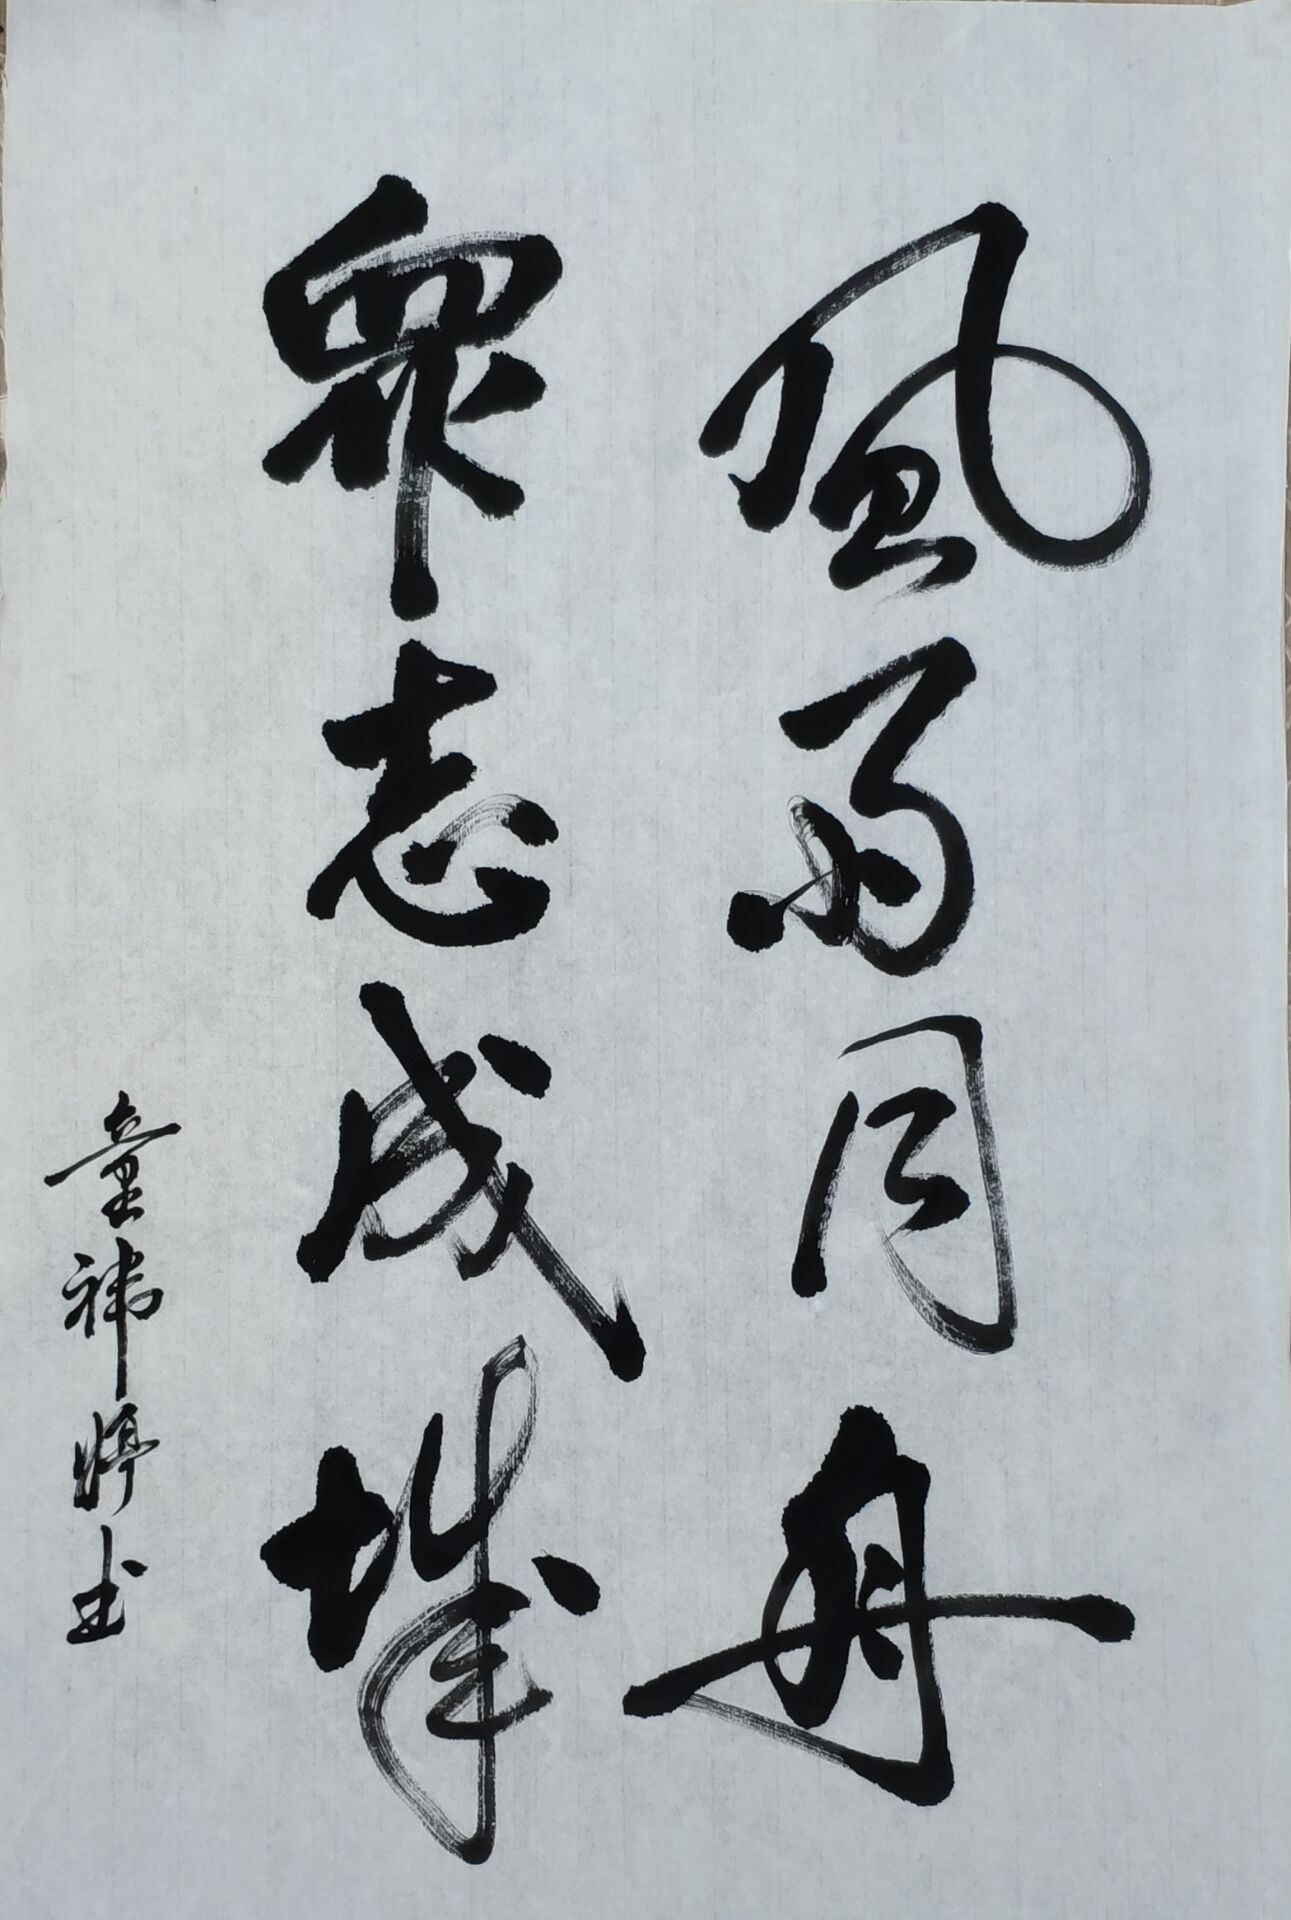 風雨同舟
眾志成城
童祎婷书